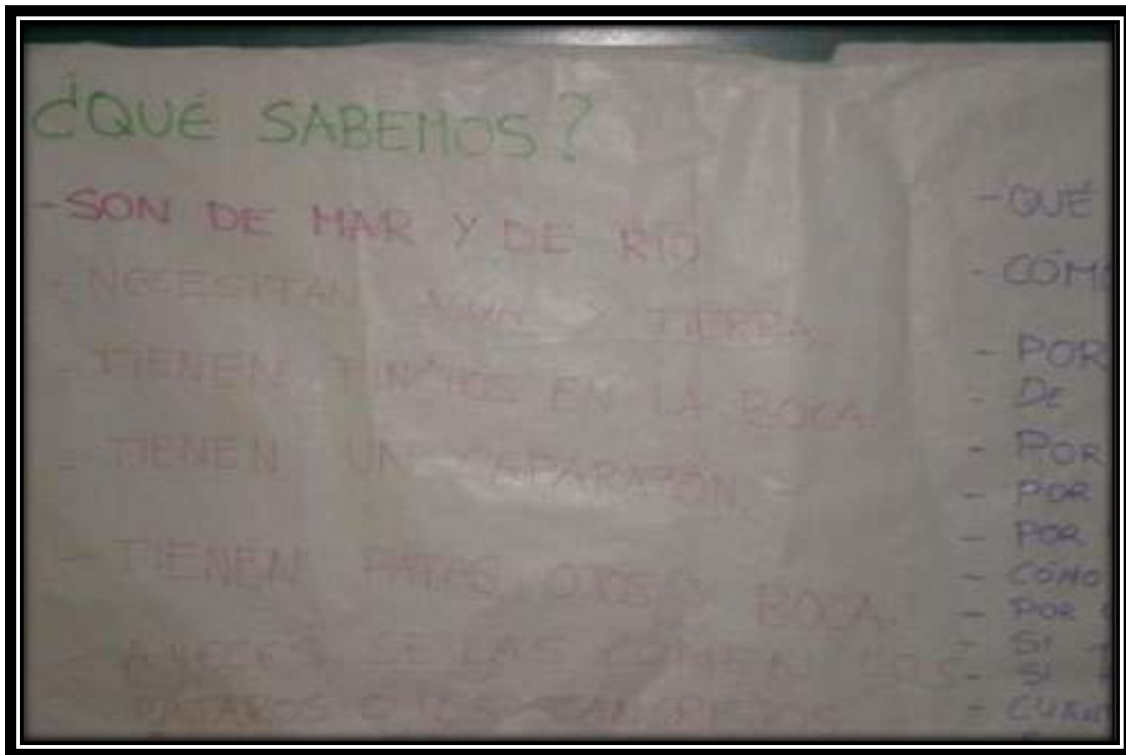 ¿QUÉ SABEMOS?
-SON DE MAR Y DE RÍO
- NECESITAN AGUA Y TIERRA.
- TIENEN EN LA BOCA.
- TIENEN UN CAPARAZÓN.
- TIENEN PATAS OJOS Y BOCA.
- A VECES SE LAS COMEN LOS
PÁJAROS O LOS
-QUÉ
- CÓM
- POR
- DE
- POR
- POR
- POR
- CÓMO
- POR
- SI
- SI
- CUAN